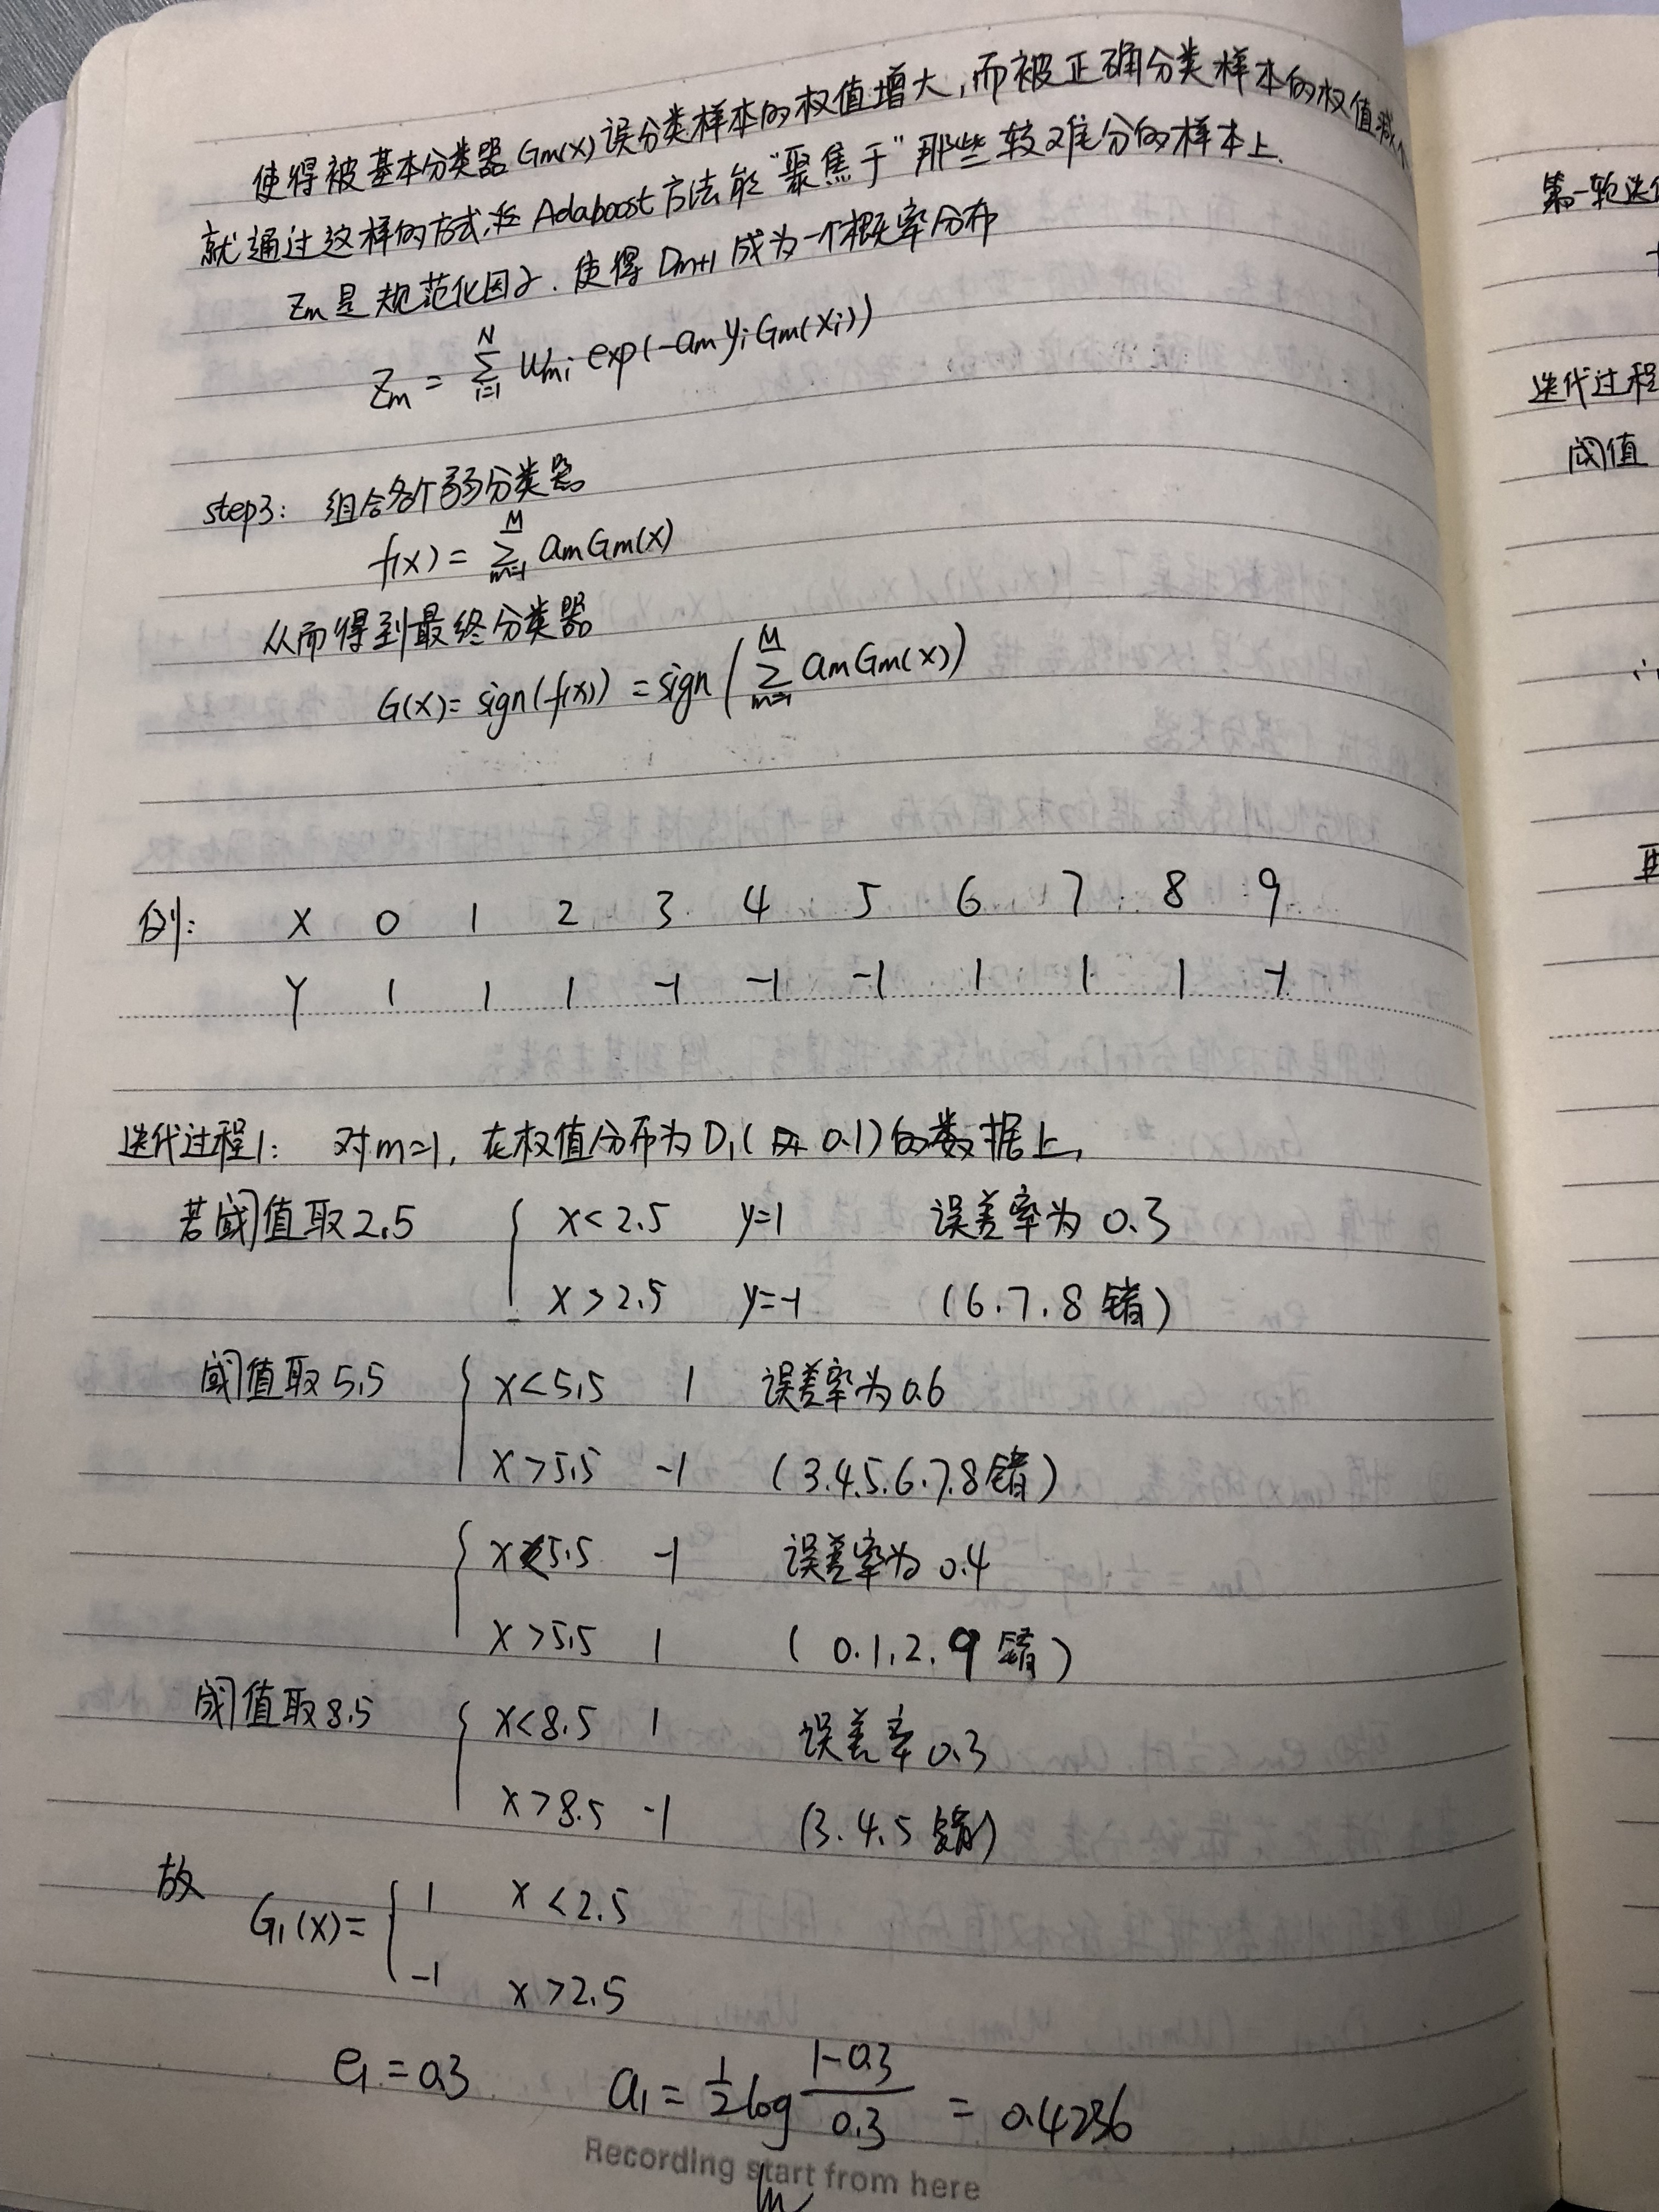 使得被基本分类器Gm(x)误分类样本的权值增大,而被正确分类样本的权值减小
就通过这样的方式, Adaboost方法能"聚焦于"那些较难分的样本上.
Zm是规范化因子.使得Dm+1成为一个概率分布
Zm = Σ_{i=1}^{N} Wmi exp(-am yi Gm(xi))
step3: 组合各个弱分类器
f(x) = Σ_{m=1}^{M} am Gm(x)
从而得到最终分类器
G(x) = sign(f(x)) = sign(Σ_{m=1}^{M} am Gm(x))
例: X 0 1 2 3 4 5 6 7 8 9
Y 1 1 1 -1 -1 -1 1 1 1 -1
迭代过程1: 对m=1, 在权值分布为D1( 0.1)的数据上,
若阈值取2.5 { x<2.5 y=1 误差率为0.3
x>2.5 y=-1 (6.7.8错)
阈值取5.5 { x<5.5 1 误差率为0.6
x>5.5 -1 (3.4.5.6.7.8错)
{ x<5.5 -1 误差率为0.4
x>5.5 1 (0.1.2.9错)
阈值取8.5 { x<8.5 1 误差率0.3
x>8.5 -1 (3.4.5错)
故 G1(x) = { 1 x<2.5
-1 x>2.5
e1=0.3 a1 = 1/2 log (1-0.3)/0.3 = 0.4236
Recording start from here
ln
第一轮迭代
迭代过程
阈值